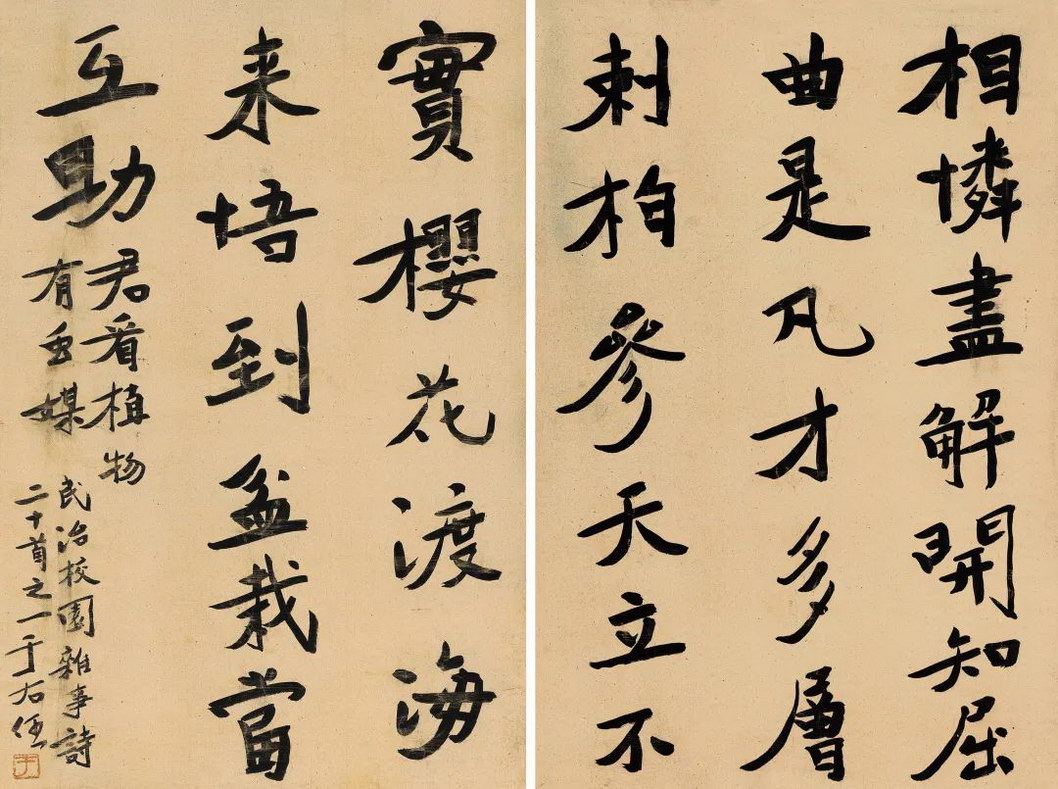 相憐盡解開知屈
曲是凡才多層
刺柏參天立不
實櫻花渡海
来悟到盆栽當
互助
君看植物
有虫媒
民治校園雜事詩
二十首之一于右任